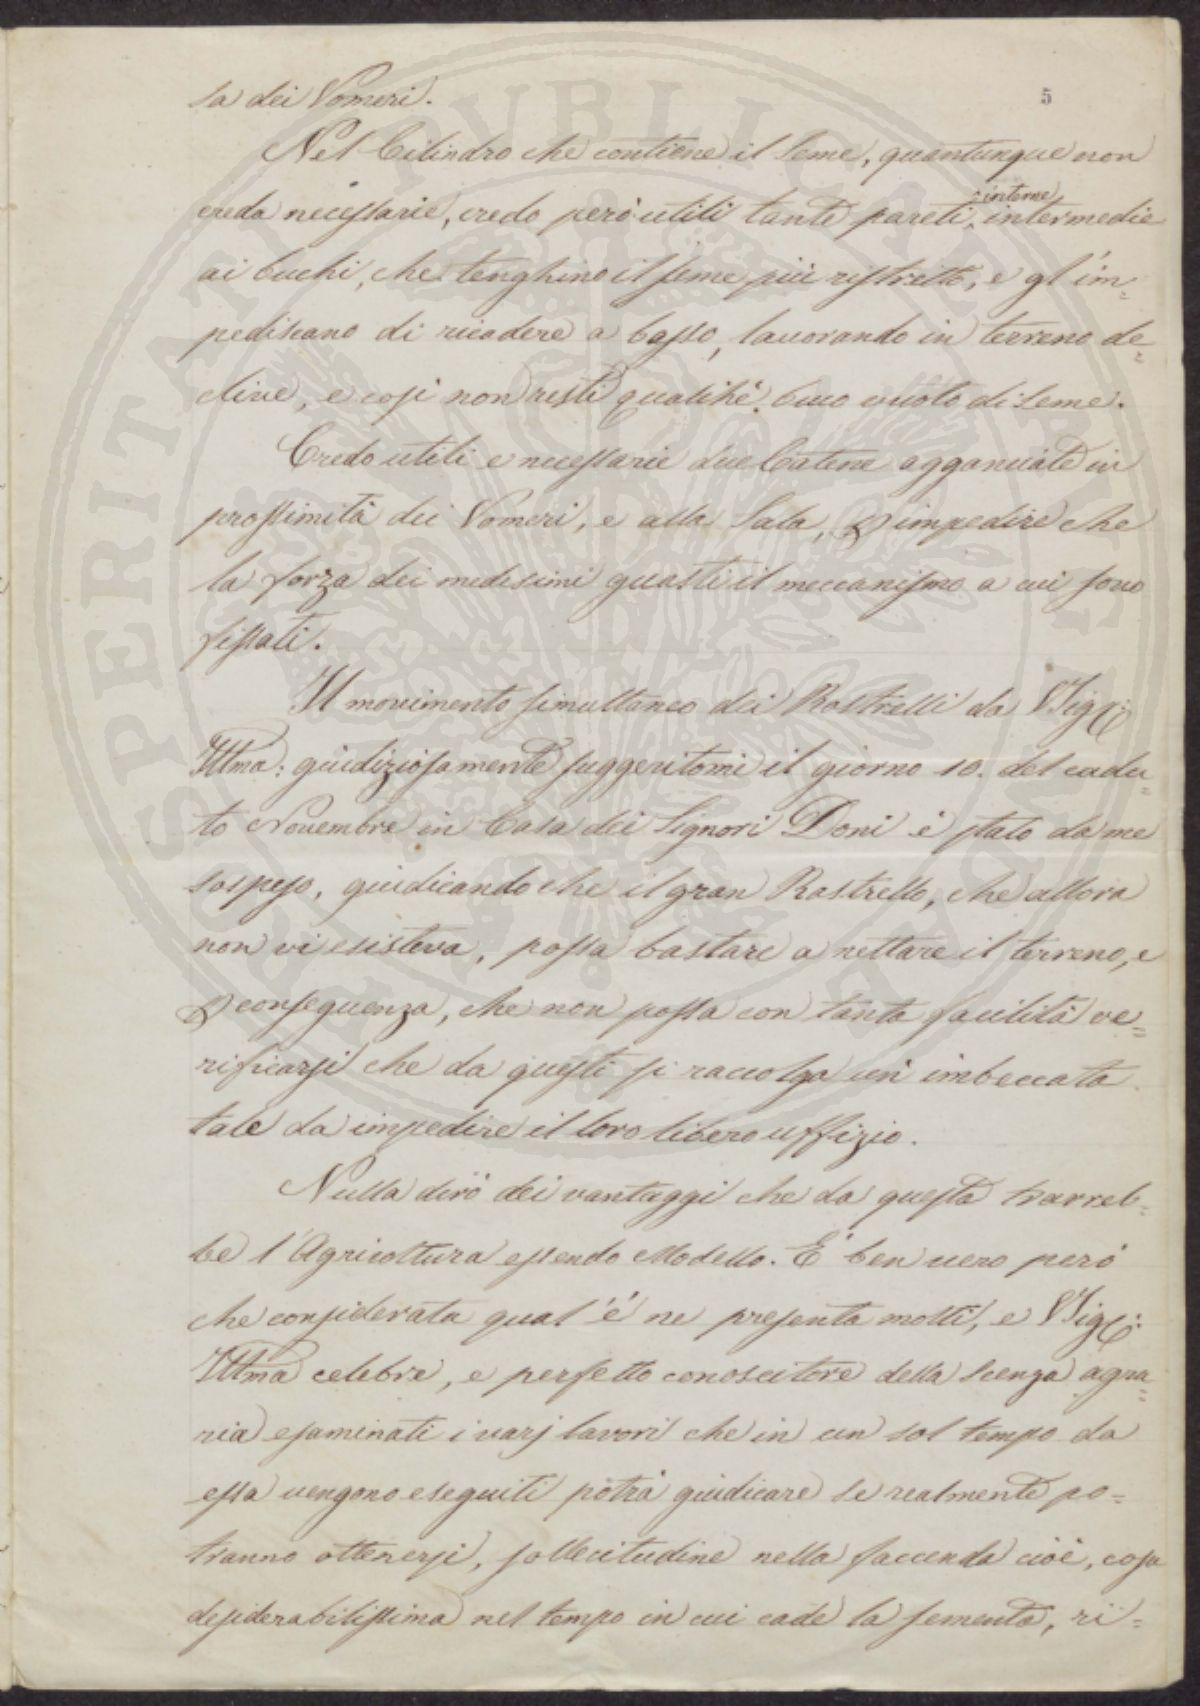 5
sa dei Vomeri.
Nel Cilindro che contiene il seme, quantunque non
creda necessarie, credo però utili tante pareti, interne, intermedie
ai buchi, che tenghino il seme più ristretto, e gl'im=
pediscano di ricadere a basso, lavorando in terreno de=
clive, e così non resti qualche buco vuoto di seme.
Credo utili e necessarie due Catene agganciate in
prossimità dei Vomeri, e alla Sala, p impedire che
la forza dei medesimi guasti il meccanismo a cui sono
fissati.
Il movimento simultaneo dei Rastrelli da VSig:
Illma: giudiziosamente suggeritomi il giorno 10. del cadu=
to Novembre in Casa dei Signori Doni è stato da me
sospeso, giudicando che il gran Rastrello, che allora
non vi esisteva, possa bastare a nettare il terreno, e
p conseguenza, che non possa con tanta facilità ve=
rificarsi che da questi si raccolga un imbeccata
tale da impedire il loro libero uffizio.
Nulla dirò dei vantaggi che da questa trarreb=
be l'Agricoltura essendo Modello. È ben vero però
che considerata qual'è ne presenta molti, e VSig:
Illma celebre, e perfetto conoscitore della Scenza agra=
ria esaminati i varj lavori che in un sol tempo da
essa vengono eseguiti potrà giudicare se realmente po=
tranno ottenersi, sollecitudine nella faccenda cioè, cosa
desiderabilissima nel tempo in cui cade la sementa, ri=